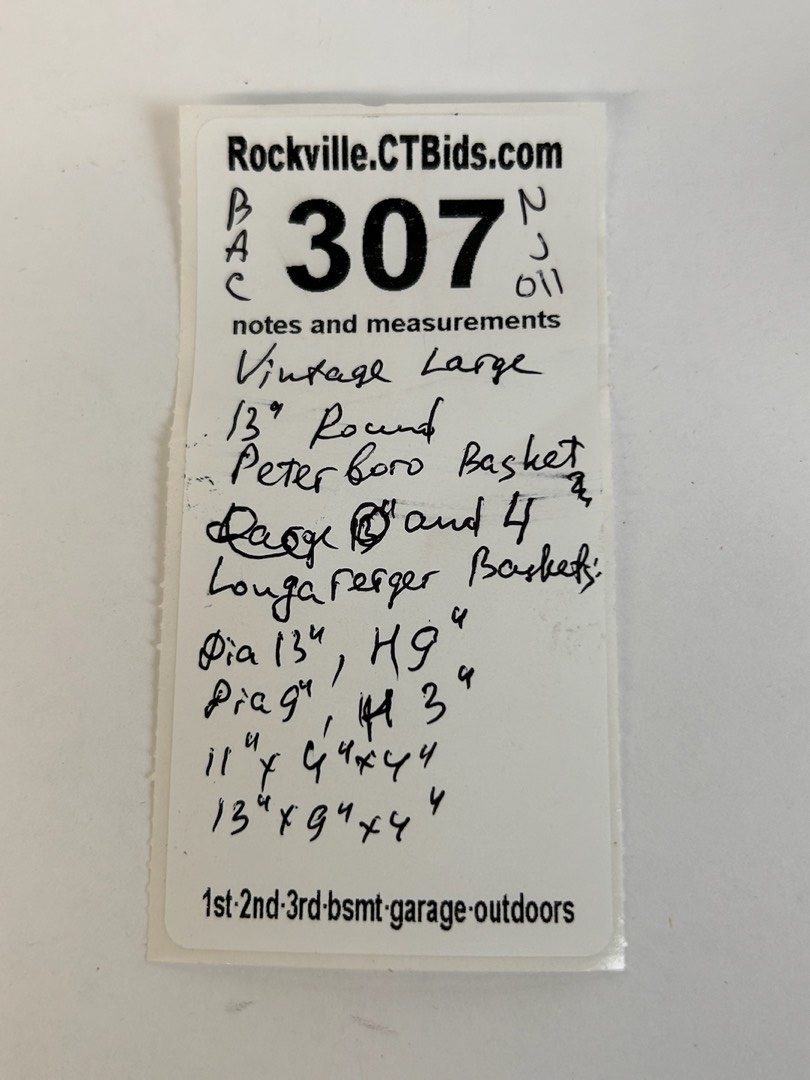 Rockville.CTBids.com
B
A
C
307
N
J
011
notes and measurements
Vintage Large
13" Round
Peterboro Basket
and 4
Longaberger Baskets:
Dia 13", H 9"
Dia 9", H 3"
11" x 4" x 4"
13" x 9" x 4"
1st·2nd·3rd·bsmt·garage·outdoors